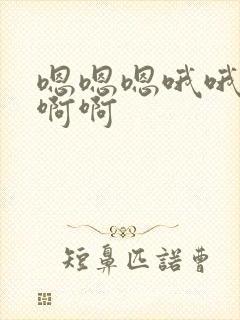 嗯嗯嗯哦哦
啊啊
短鼻匹諾曹